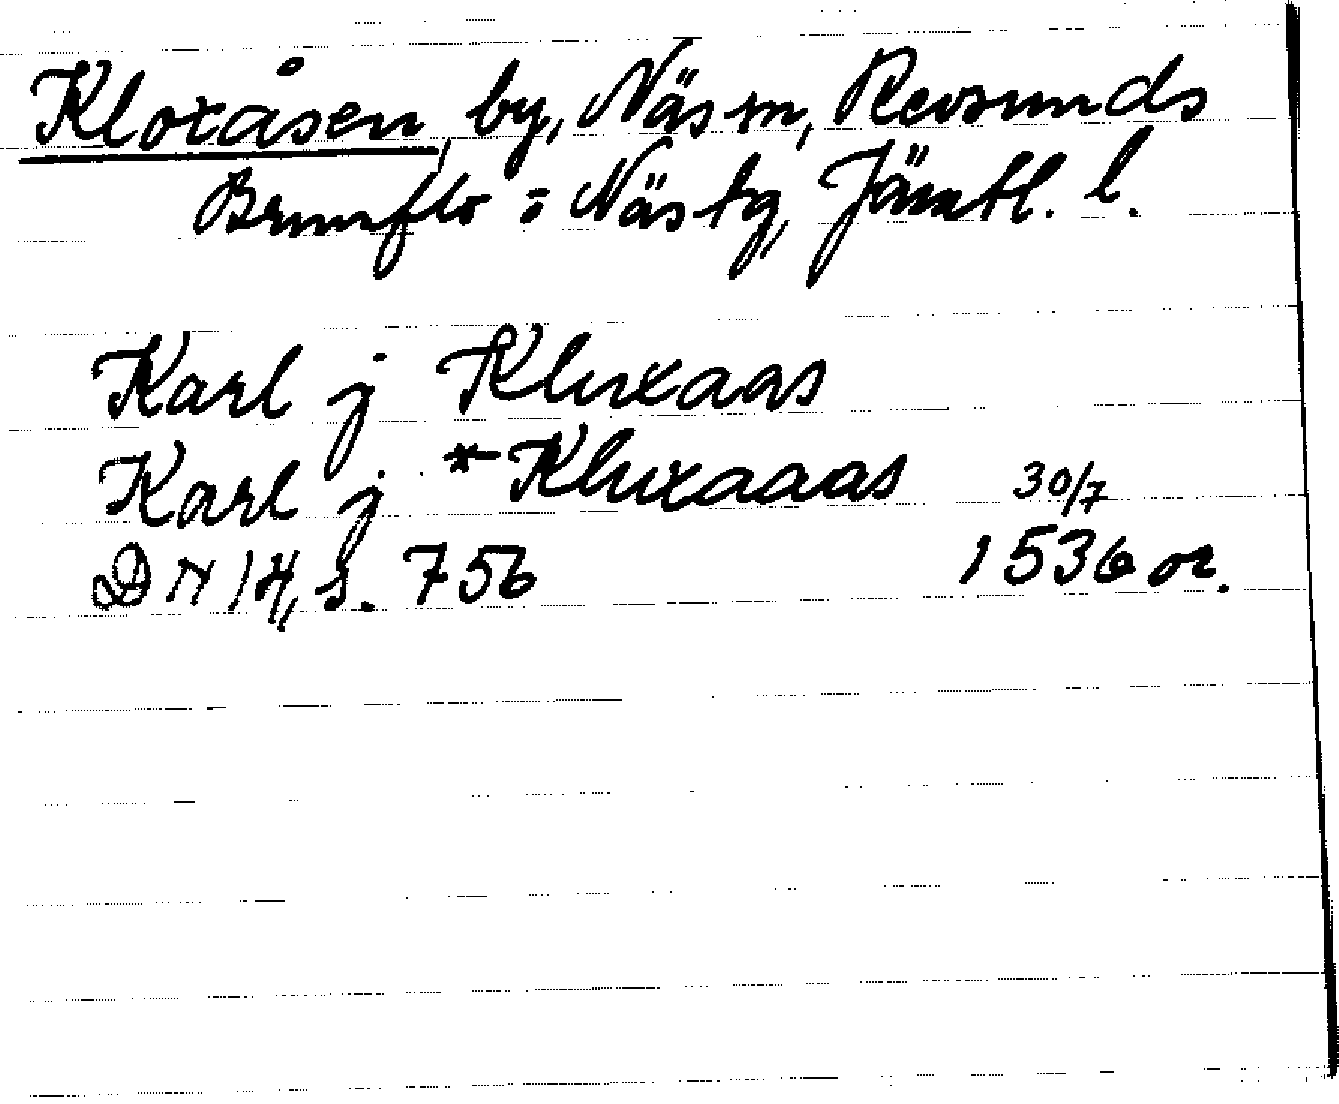 Kloxåsen, by, Näs sn, Revsunds
Brunflo o Näs tg, Jämtl. l.
Karl j Kluxaas
Karl j *Kluxaaas 30/7
DN 14, s. 756 1536 or.